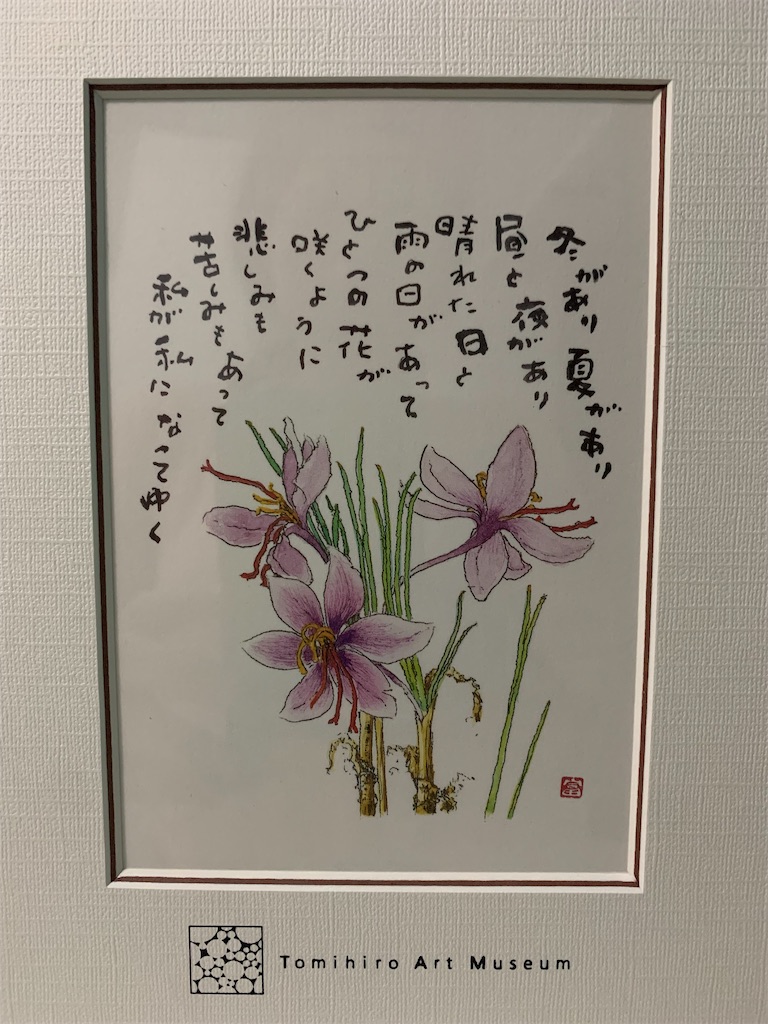 冬があり夏があり
昼と夜があり
晴れた日と
雨の日があって
ひとつの花が
咲くように
悲しみも
苦しみもあって
私が私になってゆく
富
Tomihiro Art Museum